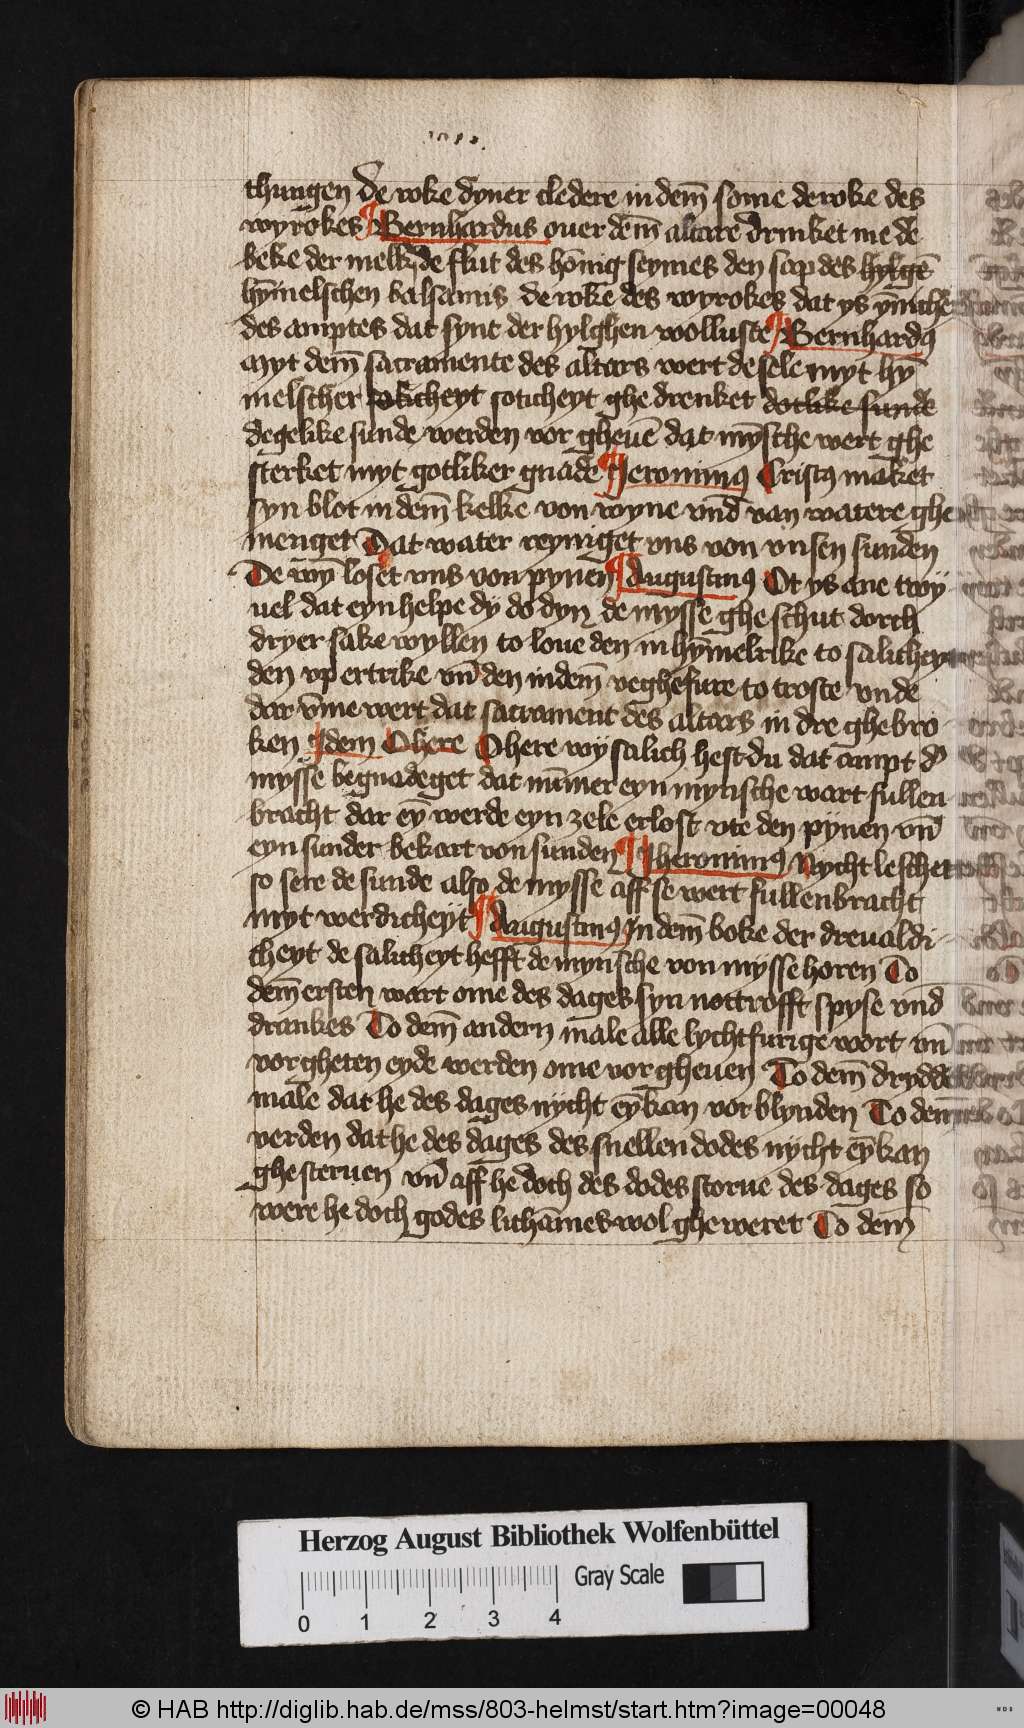 thungen de roke dyner cledere in dem̄ some de roke des
wyrokes ¶ Bernhardus ouer dem̄ altare drinket me de
beke der melk de flut des hōnig seymes den sap des hylgē
hȳmelschen balsamis de roke des wyrokes dat ys
des amptes dat synt der hylghen wolluste ¶ Bernhardꝰ
Myt dem̄ sacramente des altars wert de sele myt hȳ
melscher soticheyt ghe drenket dotlike sunde
degelike sunde werden vor gheuē dat mȳsche wert ghe
sterket myt gotliker gnade ¶ Jeronimꝰ Cristꝰ maket
syn blot in dem̄ kelke von wyne vnd̄ van watere ghe
menget Dat water reyniget vns von vnsen sunden
De wȳ loset vns von pynen ¶ Augustinꝰ Ot ys ane twy
uel dat eyn helpe dy do dyn de mysse ghe schut dorch
dryer sake wyllen to loue den in hȳmelrike to salichey
den vp ertrike vn̄ den in dem̄ veghefure to troste vnde
dar vm̄me wert dat sacrament des altars in dre ghebro
ken ¶ Idem Ohere Ohere wy salich hest du dat ampt d
mysse begnadeget dat nūmer eyn mynsche wart fullen
bracht dar eȳ werde eyn zele erlost vte den pynen vn̄
eyn sunder bekart von sunden ¶ Jheronimꝰ Nycht leschet
so sere de sunde also de mysse aff se wert fullenbracht
myt werdicheyt ¶ Augustinꝰ In dem̄ boke der dreualdi
cheyt de salicheyt hefft de mynsche von mysse horen To
dem̄ ersten wart ome des dages syn nottrofft spyse vnd
drankes To dem̄ andern male alle lychtfurige wort vn̄
vorgheten eyde werden ome vorgheuen To dem̄ drydde
male dat he des dages nycht eȳ kan vorblynden To dem̄
verden dat he des dages des snellen dodes nycht eȳ kan
ghesteruen vn̄ aff he doch des dodes storue des dages so
were he doch godes lichāmes wol gheweret To dem̄
Herzog August Bibliothek Wolfenbüttel
Gray Scale
0 1 2 3 4
© HAB http://diglib.hab.de/mss/803-helmst/start.htm?image=00048